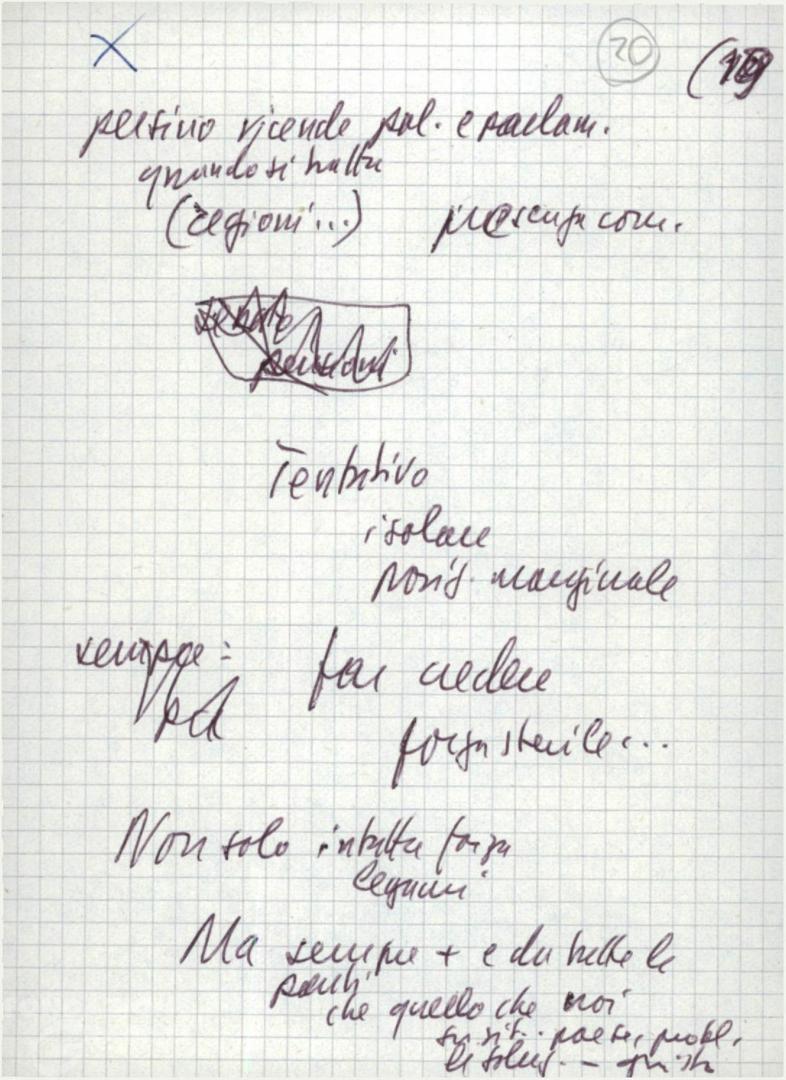 20
(19
persino vicende pol. e parlam.
quando si tratta
(regioni...) presenza com.
Tentativo
isolare
posiz. marginale
sempre:
pci
far credere
forza sterile...
Non solo intatta forza
legami
Ma sempre + e da tutte le
parti
che quello che noi
su sit. paese, probl.
e soluz. -